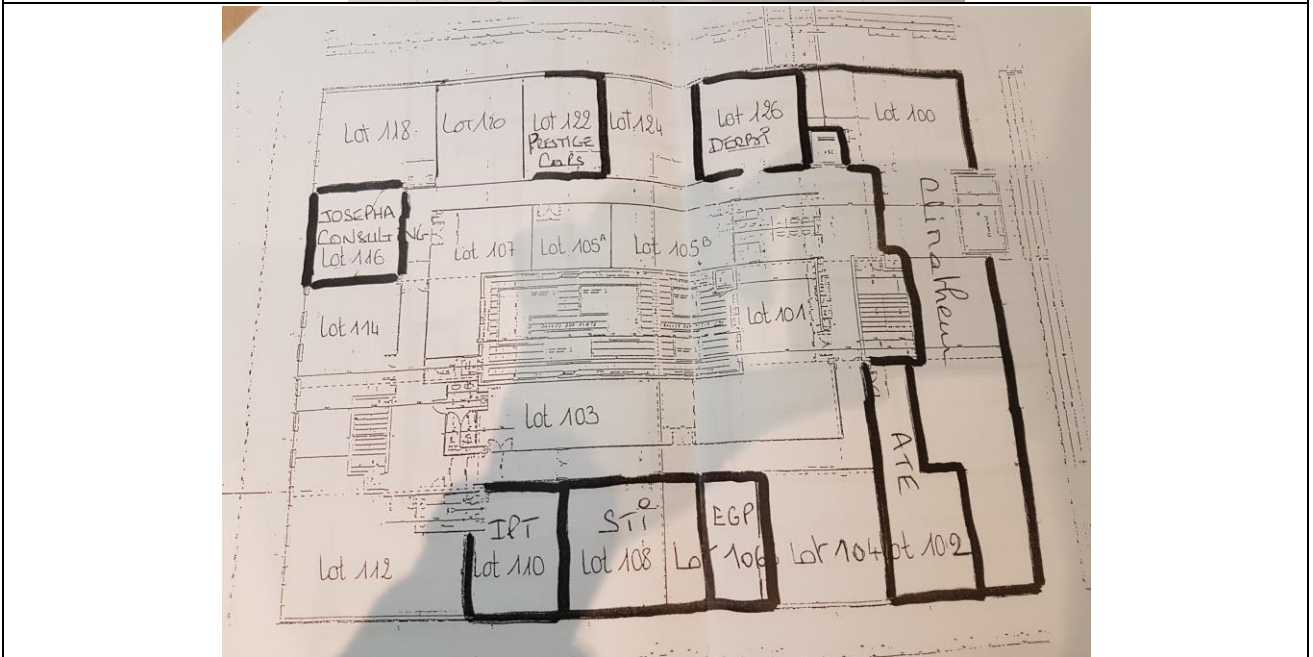 Lot 118
Lot 120
Lot 122
PRESTIGE
CARS
Lot 124
Lot 126
DERBI
Lot 100
JOSEPHA
CONSULTING
Lot 116
Lot 107
Lot 105A
Lot 105B
Lot 114
Lot 101
Lot 103
ATE
Lot 102
Lot 112
IPT
Lot 110
STI
Lot 108
EGP
Lot 106
Lot 104